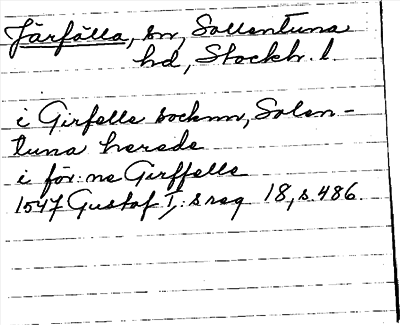 Järfälla, sn, Sollentuna
hd, Stockh. l.
i Girfelle socknn, Solen-
tuna herede
i för: ne Girffelle
1547 Gustaf I,: s reg 18, s. 486.